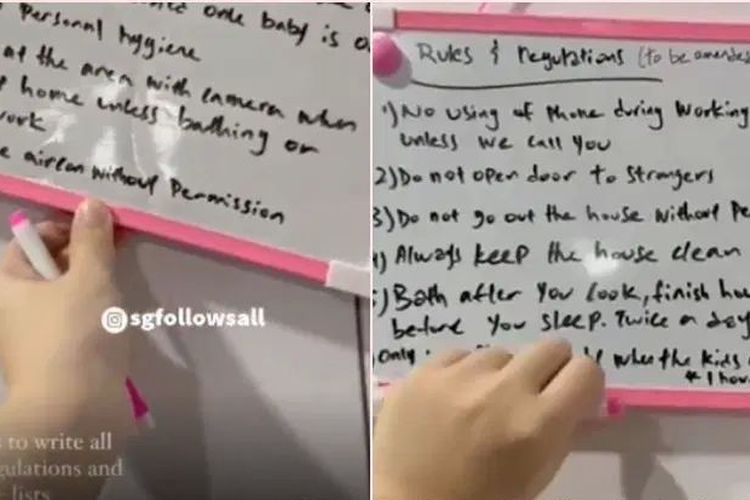 once baby is
personal hygiene
at the area with camera when
home unless bathing or
aircon without Permission
sgfollowsall
to write all
and
lists
Rules & regulations (to be
1) No using of Phone during working
unless we call you
2) Do not open door to Strangers
3) Do not go out the house without
Always keep the house clean
Bath after you cook, finish
before you sleep. Twice a day
Only
when the kids
* 1